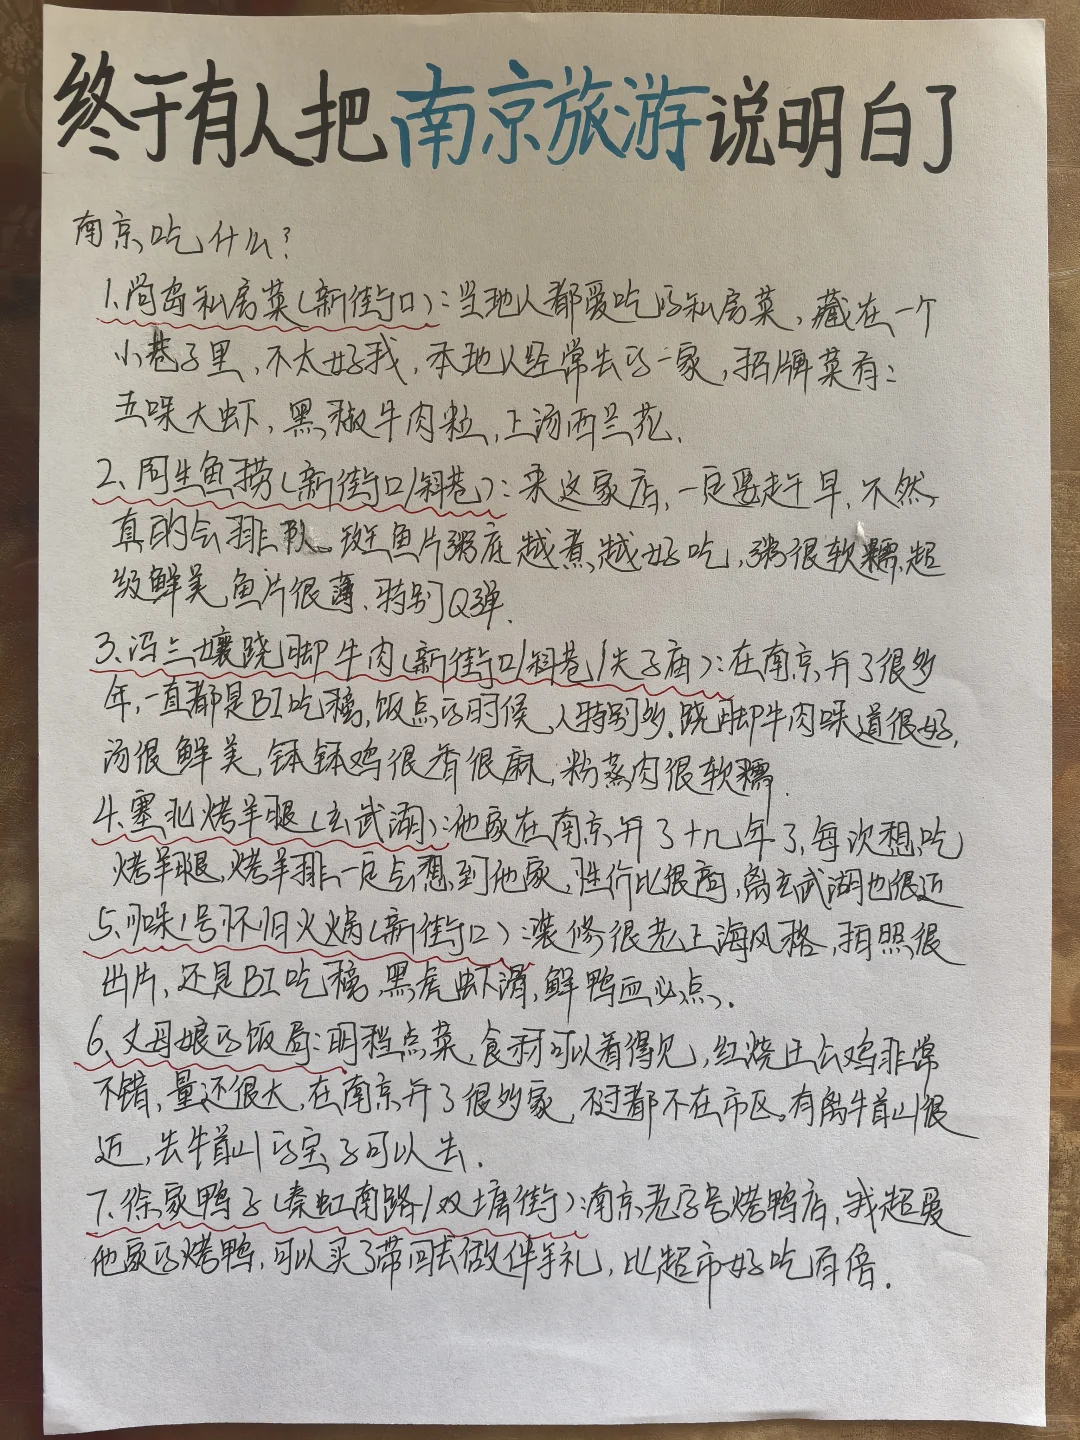 终于有人把南京旅游说明白了
南京吃什么?
1.尚岛私房菜(新街口):当地人都爱吃的私房菜,藏在一个
小巷子里,不太好找,本地人经常去的一家,招牌菜有:
五味大虾,黑椒牛肉粒,上汤西兰花.
2、阿生鱼捞(新街口/科巷):来这家店,一定要赶早,不然
真的会排队。斑鱼片粥底越煮越好吃,粥很软糯,超
级鲜美,鱼片很薄、特别Q弹.
3、冯三孃跷脚牛肉(新街口/科巷/夫子庙):在南京开了很多
年,一直都是BI吃榜,饭点的时候人特别多.跷脚牛肉味道很好,
汤很鲜美,钵钵鸡很香很麻,粉蒸肉很软糯.
4、塞北烤羊腿(玄武湖):他家在南京开了十几年了,每次想吃
烤羊腿,烤羊排一定会想到他家,性价比很高,离玄武湖也很近
5、味1号怀旧火锅(新街口):装修很老上海风格,拍照很
出片,还是BI吃榜,黑虎虾滑,鲜鸭血必点.
6、丈母娘的饭局:明档点菜,食材可以看得见,红烧土公鸡非常
不错,量还很大,在南京开了很多家,不过都不在市区,有离牛首山很
近,去牛首山的宝子可以去.
7.徐家鸭子(秦虹南路/双塘街):南京老字号烤鸭店,我超爱
他家的烤鸭,可以买了带回去做伴手礼,比超市好吃百倍.